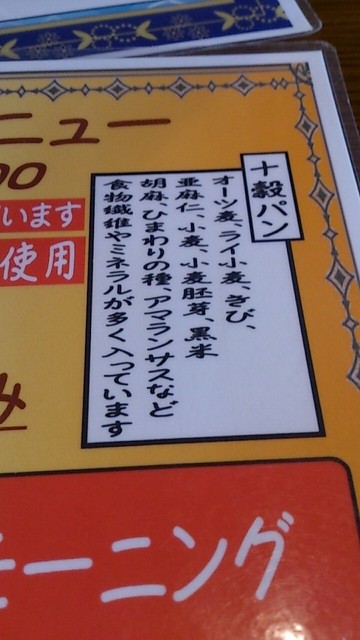 ニュー
00
います
使用
み
十穀パン
オーツ麦、ライ小麦、きび、
亜麻仁、小麦、小麦胚芽、黒米
胡麻、ひまわりの種、アマランサスなど
食物繊維やミネラルが多く入っています
モーニング